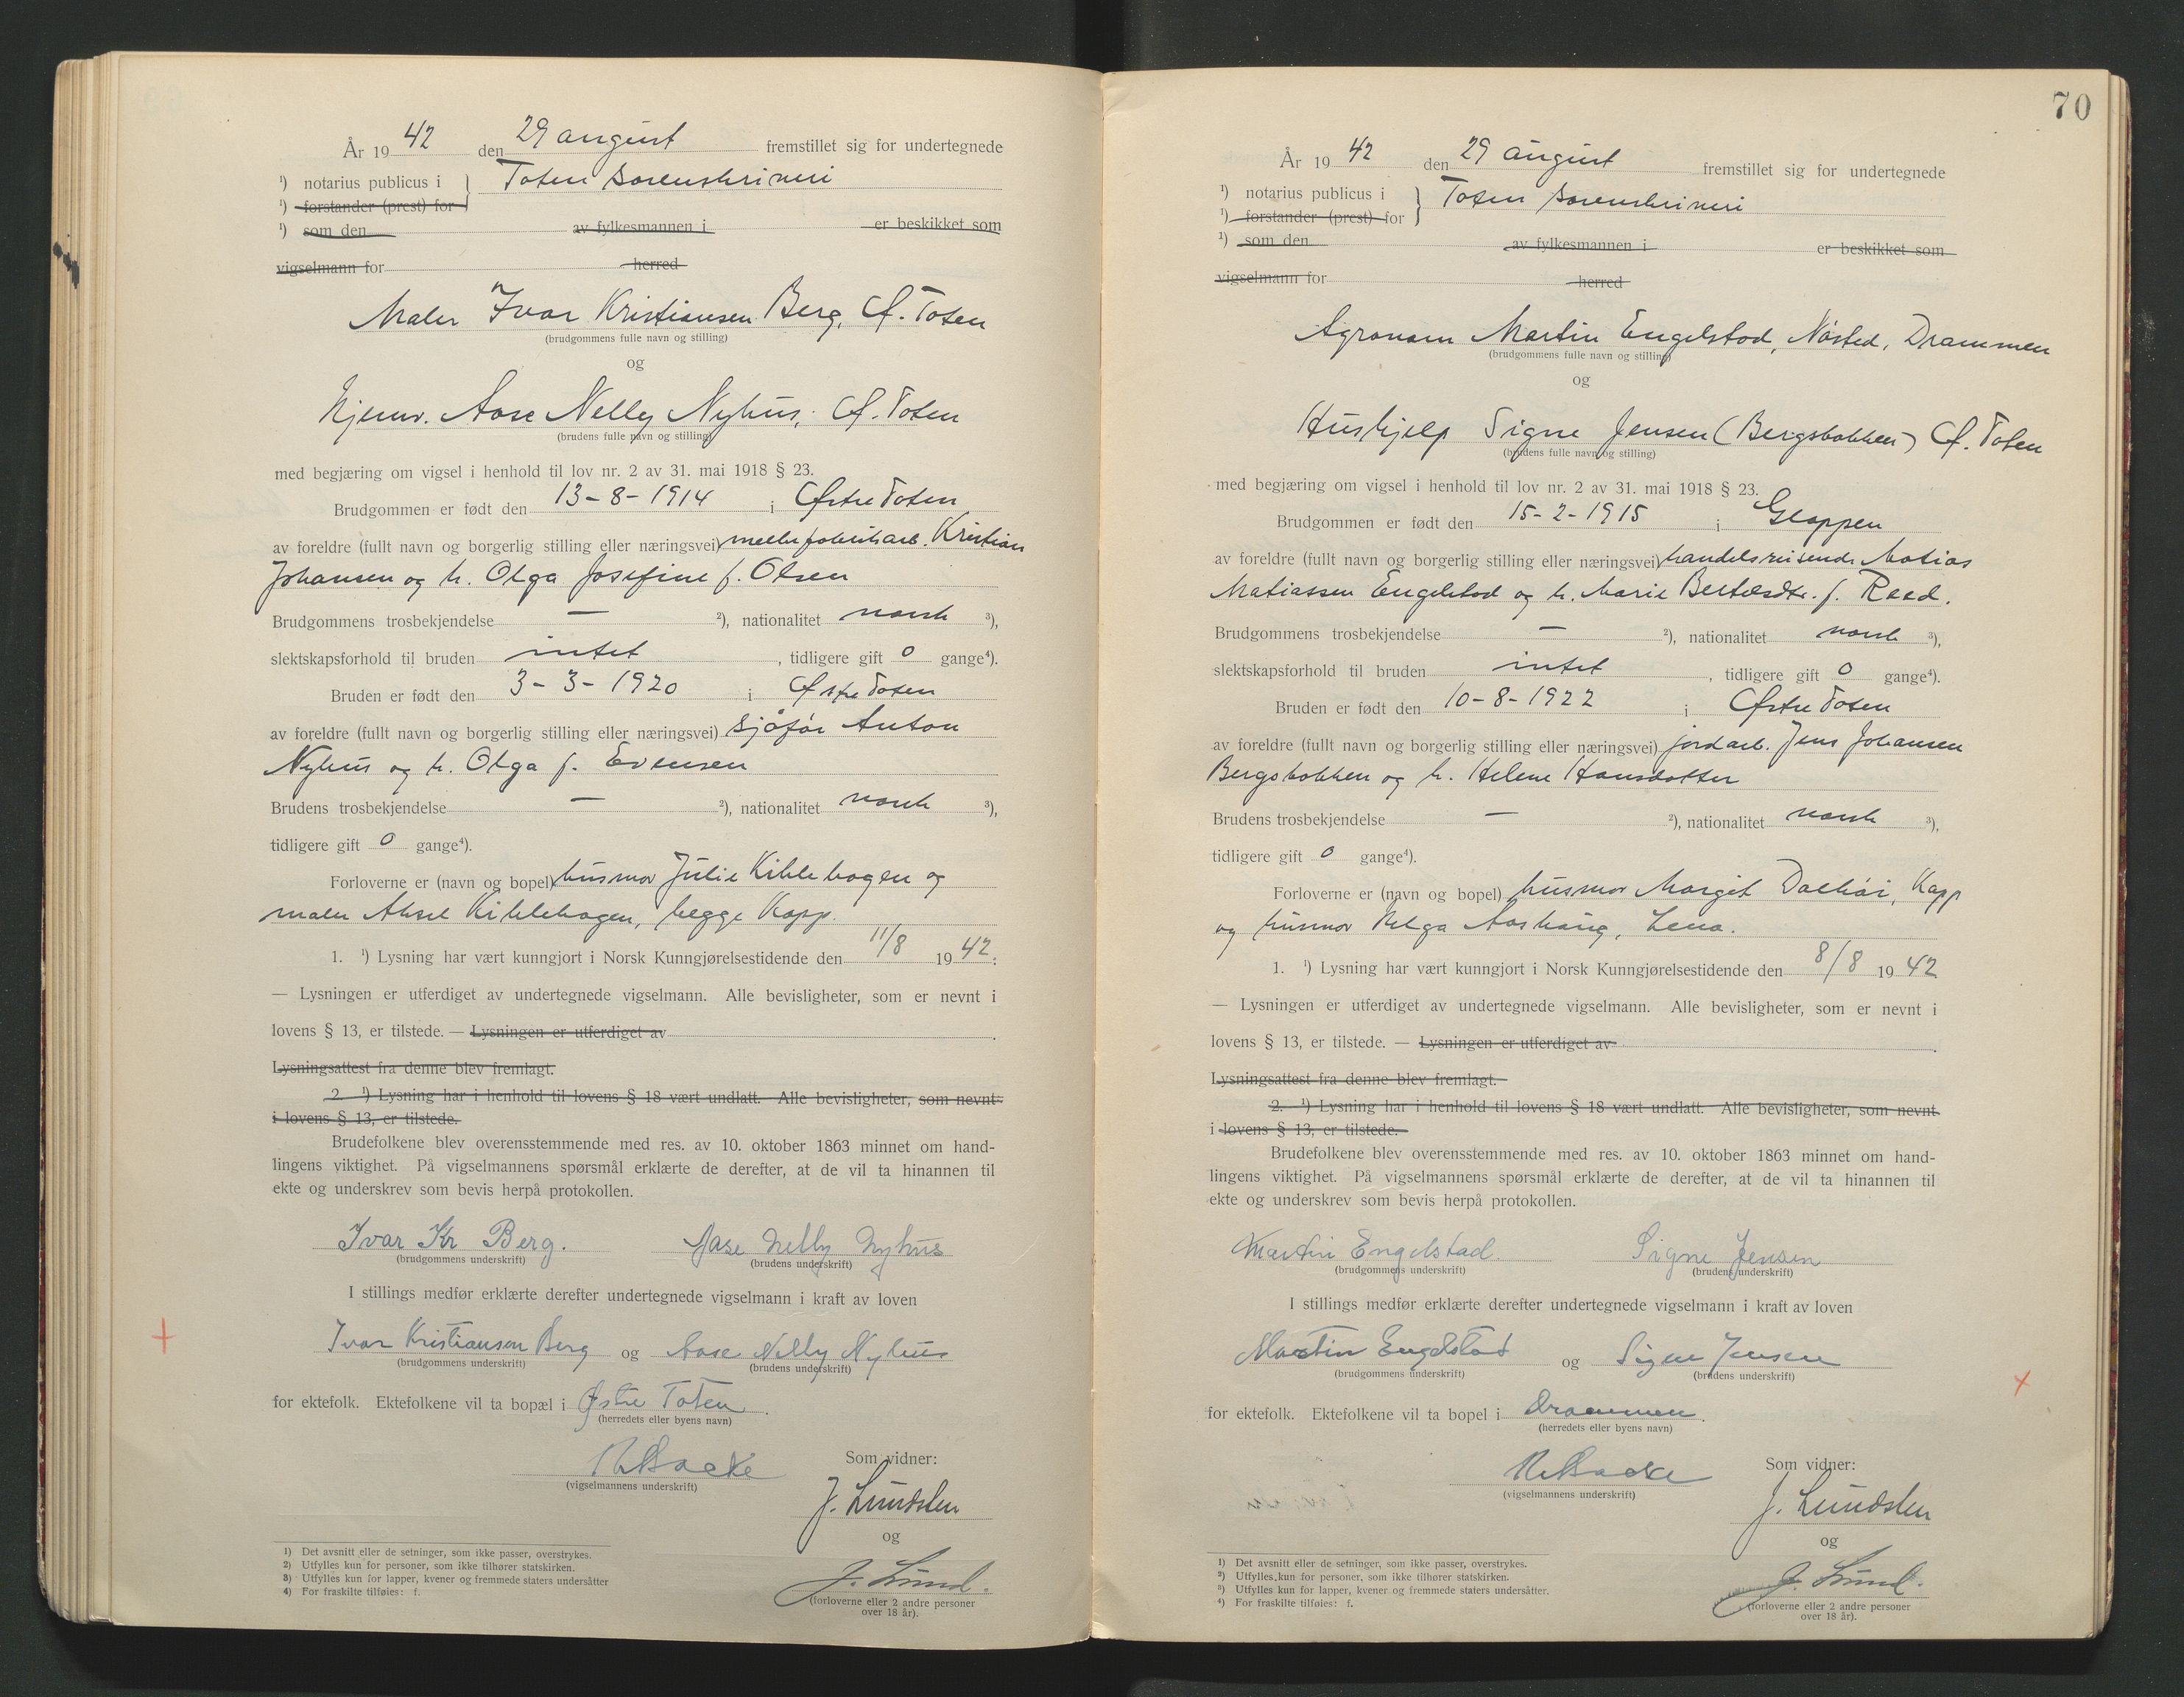 År 19 42 den 29 august fremstillet sig for undertegnede
¹) notarius publicus i } Toten sorenskriveri
¹) forstander (prest) for
¹) som den av fylkesmannen i er beskikket som
vigselmann for herred
Maler Ivar Kristiansen Berg, Ø. Toten
(brudgommens fulle navn og stilling)
og
Hjemv. Aase Nelly Nyhus, Ø. Toten
(brudens fulle navn og stilling)
med begjæring om vigsel i henhold til lov nr. 2 av 31. mai 1918 § 23.
Brudgommen er født den 13-8-1914 i Østre Toten
av foreldre (fullt navn og borgerlig stilling eller næringsvei) Kristian
Johansen og h. Olga Josefine f. Olsen
Brudgommens trosbekjendelse — ²), nationalitet norsk ³),
slektskapsforhold til bruden intet , tidligere gift 0 gange⁴).
Bruden er født den 3-3-1920 i Østre Toten
av foreldre (fullt navn og borgerlig stilling eller næringsvei) sjåfør Anton
Nyhus og h. Olga f. Evensen
Brudens trosbekjendelse — ²), nationalitet norsk ³),
tidligere gift 0 gange⁴).
Forloverne er (navn og bopel) husmor Julie Kihlehagen og
maler Aksel Kihlehagen, begge Kapp.
1. ¹) Lysning har vært kunngjort i Norsk Kunngjørelsestidende den 11/8 19 42.
— Lysningen er utferdiget av undertegnede vigselmann. Alle bevisligheter, som er nevnt i
lovens § 13, er tilstede. — Lysningen er utferdiget av .
Lysningsattest fra denne blev fremlagt.
2. ¹) Lysning har i henhold til lovens § 18 vært undlatt. Alle bevisligheter, som nevnt
i lovens § 13, er tilstede.
Brudefolkene blev overensstemmende med res. av 10. oktober 1863 minnet om hand-
lingens viktighet. På vigselmannens spørsmål erklærte de derefter, at de vil ta hinannen til
ekte og underskrev som bevis herpå protokollen.
Ivar Kr Berg. Aase Nelly Nyhus
(brudgommens underskrift) (brudens underskrift)
I stillings medfør erklærte derefter undertegnede vigselmann i kraft av loven
Ivar Kristiansen Berg og Aase Nelly Nyhus
(brudgommens underskrift) (brudens underskrift)
for ektefolk. Ektefolkene vil ta bopæl i Østre Toten.
(herredets eller byens navn)
Som vidner:
(vigselmannens underskrift)
J. Lundsten
og
J. Lund.
(forloverne eller 2 andre personer
over 18 år).
1) Det avsnitt eller de setninger, som ikke passer, overstrykes.
2) Utfylles kun for personer, som ikke tilhører statskirken.
3) Utfylles kun for lapper, kvener og fremmede staters undersåtter
4) For fraskilte tilføies: f.
70
År 19 42 den 29 august fremstillet sig for undertegnede
¹) notarius publicus i } Toten sorenskriveri
¹) forstander (prest) for
¹) som den av fylkesmannen i er beskikket som
vigselmann for herred
Agronom Martin Engelstad, Nøsted, Drammen
(brudgommens fulle navn og stilling)
og
Hushjelp Signe Jensen (Bergsbakken) Ø. Toten
(brudens fulle navn og stilling)
med begjæring om vigsel i henhold til lov nr. 2 av 31. mai 1918 § 23.
Brudgommen er født den 15-2-1915 i Gloppen
av foreldre (fullt navn og borgerlig stilling eller næringsvei) handelsreisende Matias
Matiassen Engelstad og h. Marie f. Reed.
Brudgommens trosbekjendelse — ²), nationalitet norsk ³),
slektskapsforhold til bruden intet , tidligere gift 0 gange⁴).
Bruden er født den 10-8-1922 i Østre Toten
av foreldre (fullt navn og borgerlig stilling eller næringsvei) jordarb. Jens Johansen
Bergsbakken og h. Helene Hansdatter
Brudens trosbekjendelse — ²), nationalitet norsk ³),
tidligere gift 0 gange⁴).
Forloverne er (navn og bopel) husmor Margit Dalhøi, Kapp
og husmor Helga Aashaug, Lena.
1. ¹) Lysning har vært kunngjort i Norsk Kunngjørelsestidende den 8/8 19 42
— Lysningen er utferdiget av undertegnede vigselmann. Alle bevisligheter, som er nevnt i
lovens § 13, er tilstede. — Lysningen er utferdiget av .
Lysningsattest fra denne blev fremlagt.
2. ¹) Lysning har i henhold til lovens § 18 vært undlatt. Alle bevisligheter, som nevnt
i lovens § 13, er tilstede.
Brudefolkene blev overensstemmende med res. av 10. oktober 1863 minnet om hand-
lingens viktighet. På vigselmannens spørsmål erklærte de derefter, at de vil ta hinannen til
ekte og underskrev som bevis herpå protokollen.
Martin Engelstad. Signe Jensen
(brudgommens underskrift) (brudens underskrift)
I stillings medfør erklærte derefter undertegnede vigselmann i kraft av loven
Martin Engelstad og Signe Jensen
(brudgommens underskrift) (brudens underskrift)
for ektefolk. Ektefolkene vil ta bopel i Drammen.
(herredets eller byens navn)
Som vidner:
(vigselmannens underskrift)
J. Lundsten
og
J. Lund.
(forloverne eller 2 andre personer
over 18 år).
¹) Det avsnitt eller de setninger, som ikke passer, overstrykes.
²) Utfylles kun for personer, som ikke tilhører statskirken.
³) Utfylles kun for lapper, kvener og fremmede staters undersåtter.
⁴) For fraskilte tilføies: f.